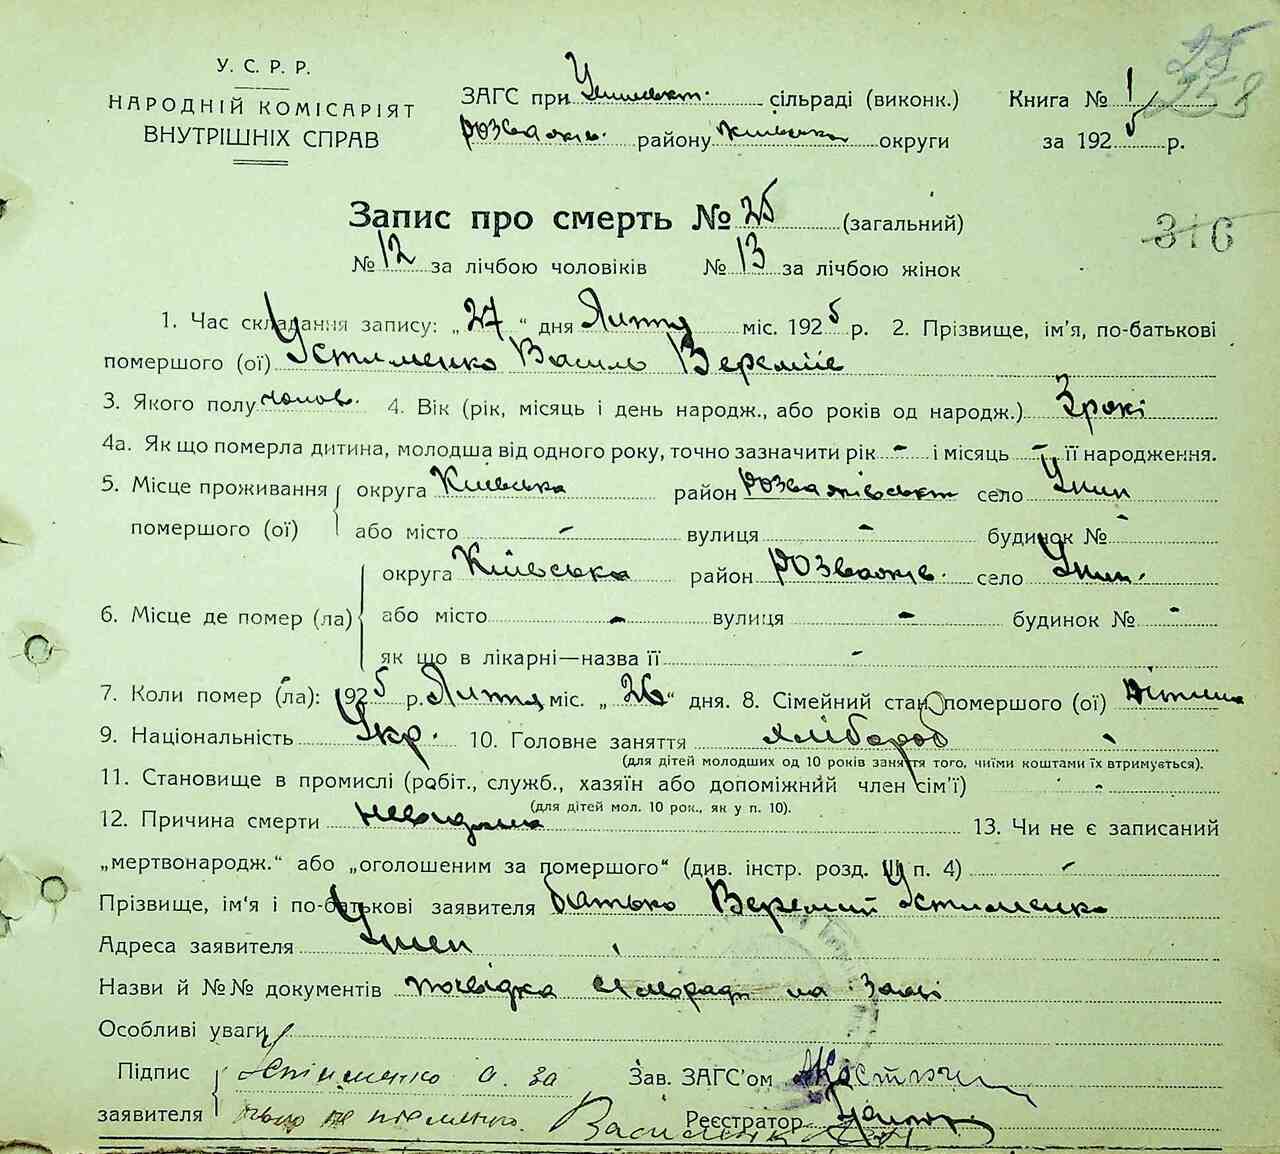 25
258
У. С. Р. Р.
НАРОДНІЙ КОМІСАРІЯТ
ВНУТРІШНІХ СПРАВ
ЗАГС при сільраді (виконк.)
Розважів. району Київська округи
Книга № 1
за 1925 р.
Запис про смерть № 25 (загальний)
316
№ 12 за лічбою чоловіків № 13 за лічбою жінок
1. Час складання запису: „27“ дня Лютня міс. 1925 р. 2. Прізвище, ім'я, по-батькові
помершого (ої) Устименко Василь Веремiiє
3. Якого полу чолов. 4. Вік (рік, місяць і день народж., або років од народж.) 3 рокі
4а. Як що померла дитина, молодша від одного року, точно зазначити рік - і місяць - її народження.
5. Місце проживання округа Київська район Розважівськ село
помершого (ої) або місто - вулиця - будинок № -
округа Київська район Розважів. село
6. Місце де помер (ла) або місто - вулиця - будинок № -
як що в лікарні—назва її -
7. Коли помер (ла): 1925 р. Лютня міс. „26“ дня. 8. Сімейний стан помершого (ої) дітина
9. Національність Укр. 10. Головне заняття хлібороб
(для дітей молодших од 10 років заняття того, чиїми коштами їх втримується).
11. Становище в промислі (робіт., служб., хазяїн або допоміжний член сім'ї) -
(для дітей мол. 10 рок., як у п. 10).
12. Причина смерти невидома 13. Чи не є записаний
„мертвонародж.“ або „оголошеним за помершого“ (див. інстр. розд. III п. 4) -
Прізвище, ім'я і по-батькові заявителя батько Веремий Устименко
Адреса заявителя
Назви й №№ документів посвідка сільради на
Особливі уваги
Підпис Устименко а. за Зав. ЗАГС'ом
заявителя Реєстратор